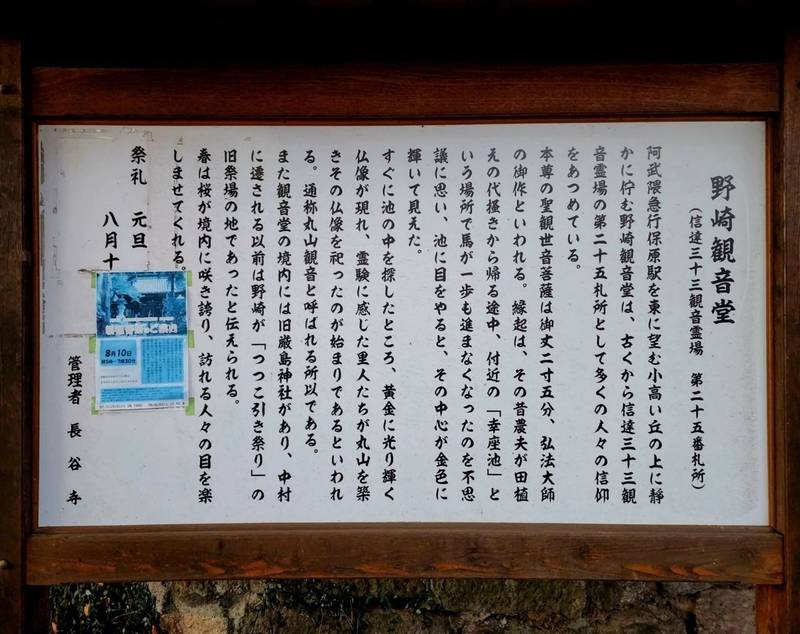 野崎観音堂
（信達三十三観音霊場　第二十五番札所）
阿武隈急行保原駅を東に望む小高い丘の上に静
かに佇む野崎観音堂は、古くから信達三十三観
音霊場の第二十五札所として多くの人々の信仰
をあつめている。
本尊の聖観世音菩薩は御丈二寸五分、弘法大師
の御作といわれる。縁起は、その昔農夫が田植
えの代掻きから帰る途中、付近の「幸座池」と
いう場所で馬が一歩も進まなくなったのを不思
議に思い、池に目をやると、その中心が金色に
輝いて見えた。
すぐに池の中を探したところ、黄金に光り輝く
仏像が現れ、霊験に感じた里人たちが丸山を築
きその仏像を祀ったのが始まりであるといわれ
る。通称丸山観音と呼ばれる所以である。
また観音堂の境内には旧厳島神社があり、中村
に遷される以前は野崎が「つつこ引き祭り」の
旧祭場の地であったと伝えられる。
春は桜が境内に咲き誇り、訪れる人々の目を楽
しませてくれる。
祭礼　元旦
八月十
管理者　長谷寺
8月10日